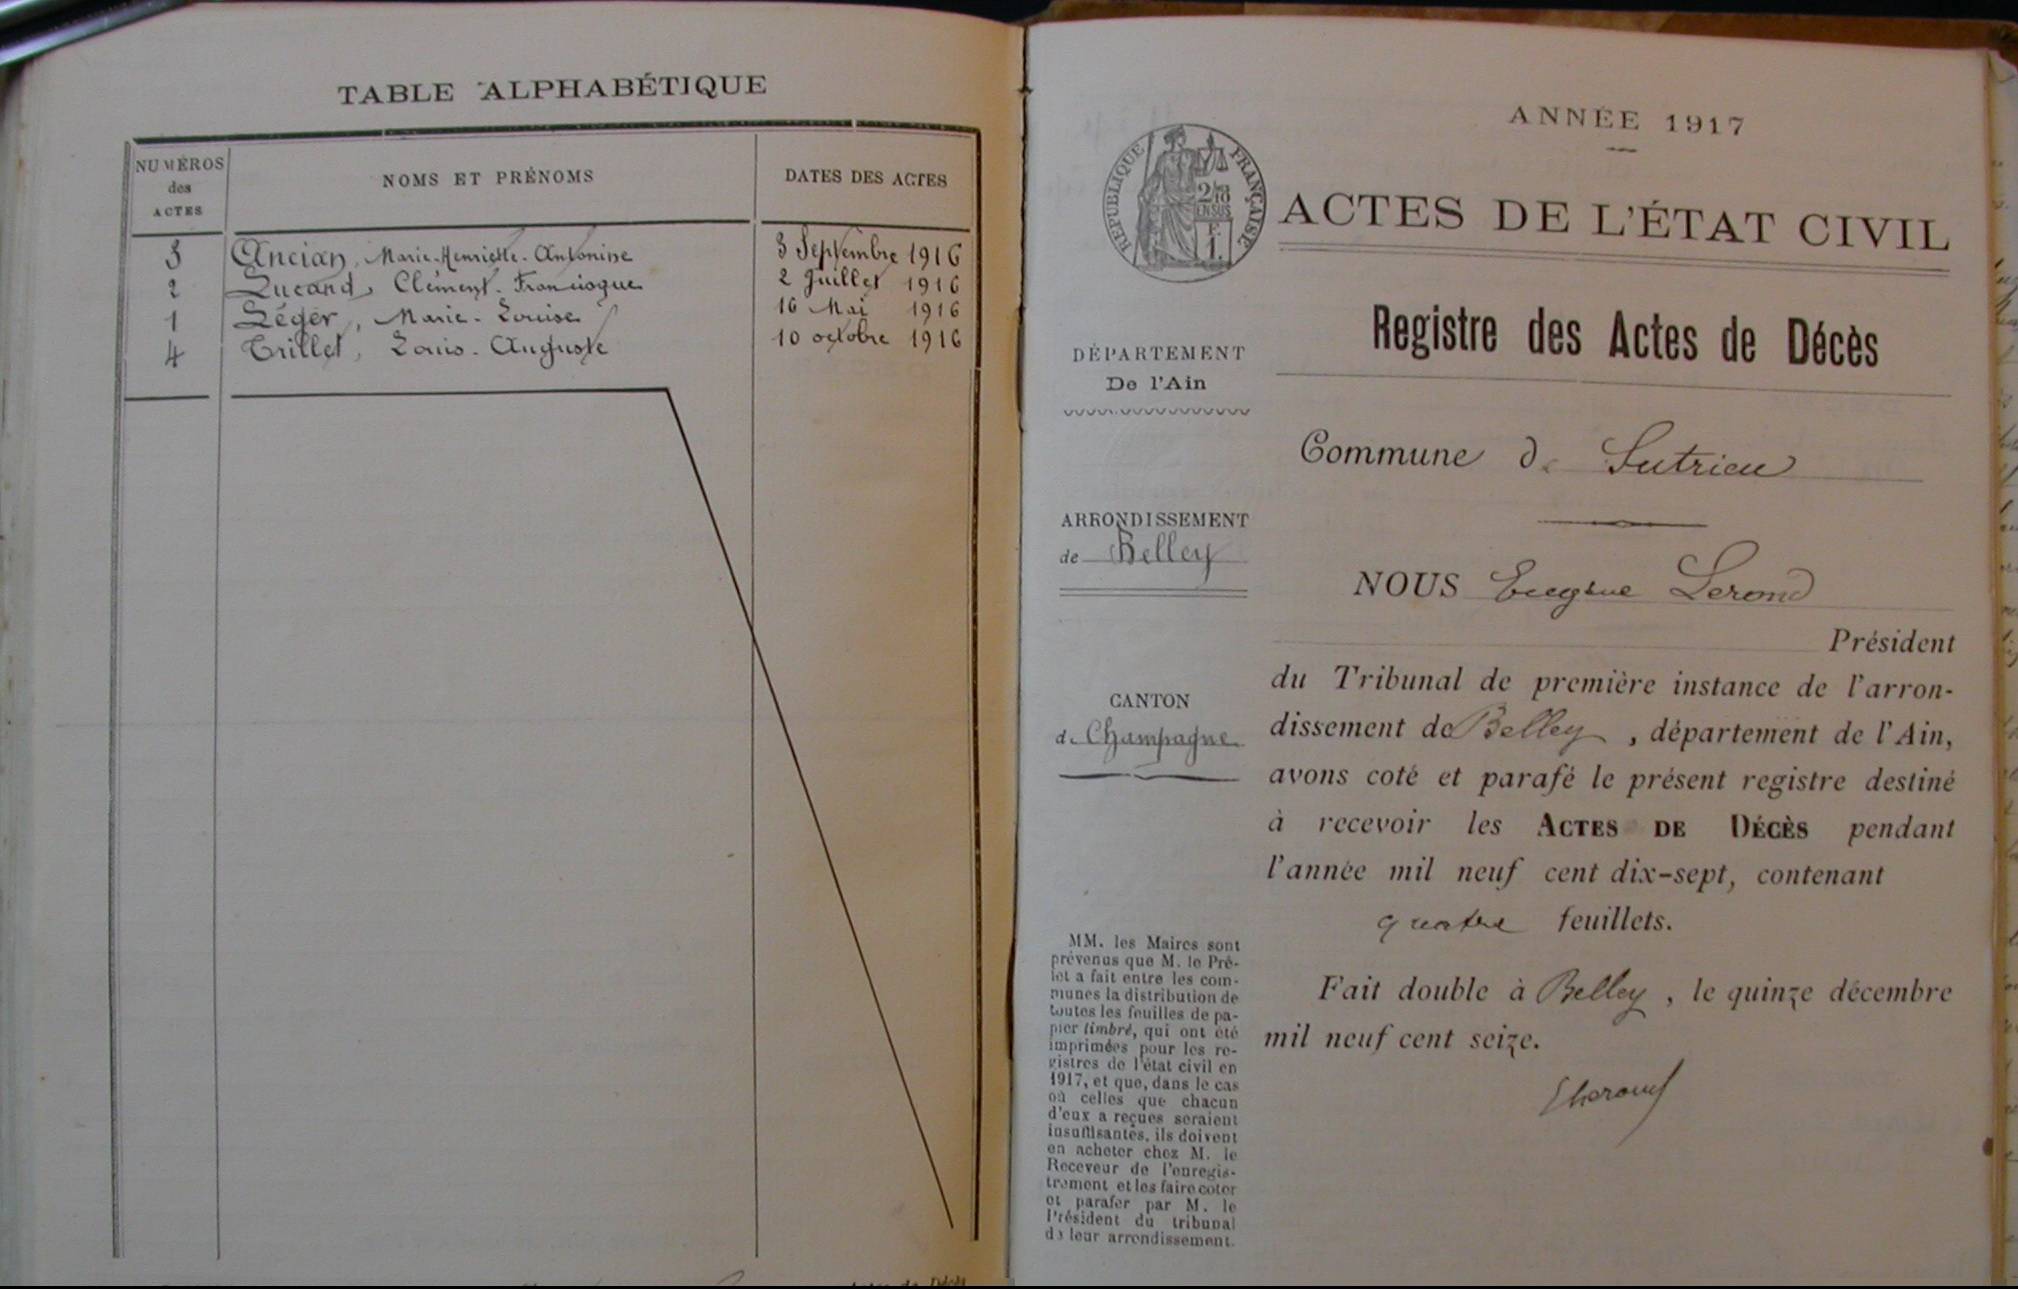 TABLE ALPHABÉTIQUE
NUMÉROS
des
ACTES
NOMS ET PRÉNOMS
DATES DES ACTES
3 Ancian, Marie-Henriette-Antonine 3 Septembre 1916
2 Lucand, Clément-Francisque 2 Juillet 1916
1 Léger, Marie-Louise 16 Mai 1916
4 Trillet, Louis-Auguste 10 octobre 1916
Actes de Décès
ANNÉE 1917
RÉPUBLIQUE FRANÇAISE
EN SUS
F.
1.
ACTES DE L'ÉTAT CIVIL
Registre des Actes de Décès
DÉPARTEMENT
De l'Ain
Commune de Sutrieu
ARRONDISSEMENT
de Belley
NOUS Eugène Lerond
Président
du Tribunal de première instance de l'arron-
dissement de Belley, département de l'Ain,
avons coté et parafé le présent registre destiné
à recevoir les ACTES DE DÉCÈS pendant
l'année mil neuf cent dix-sept, contenant
quatre feuillets.
Fait double à Belley, le quinze décembre
mil neuf cent seize.
CANTON
de Champagne
MM. les Maires sont
prévenus que M. le Pré-
fet a fait entre les com-
munes la distribution de
toutes les feuilles de pa-
pier timbré, qui ont été
imprimées pour les re-
gistres de l'état civil en
1917, et que, dans le cas
où celles que chacun
d'eux a reçues seraient
insuffisantes, ils doivent
en acheter chez M. le
Receveur de l'enregis-
trement et les faire coter
et parafer par M. le
Président du tribunal
de leur arrondissement.